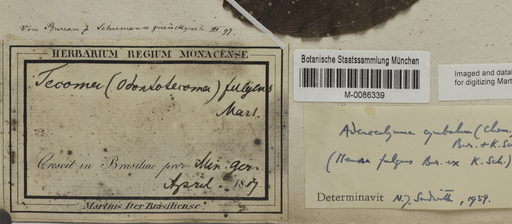 von Bureau & Schumann zurückgeh. III 97.
HERBARIUM REGIUM MONACENSE
Tecoma (Odontotecoma) fulgens
Mart.
Crescit in Brasiliae prov. Min. ger.
April 18
Martius Iter Brasiliense.
Botanische Staatssammlung München
M-0086339
Imaged and datab
for digitizing Mart
Adenocalymna cymbalum (Cham.
Bur. & K. Sc
(Memora fulgens Bur. ex K. Sch.)
Determinavit N.Y. Sandwith, 1959.